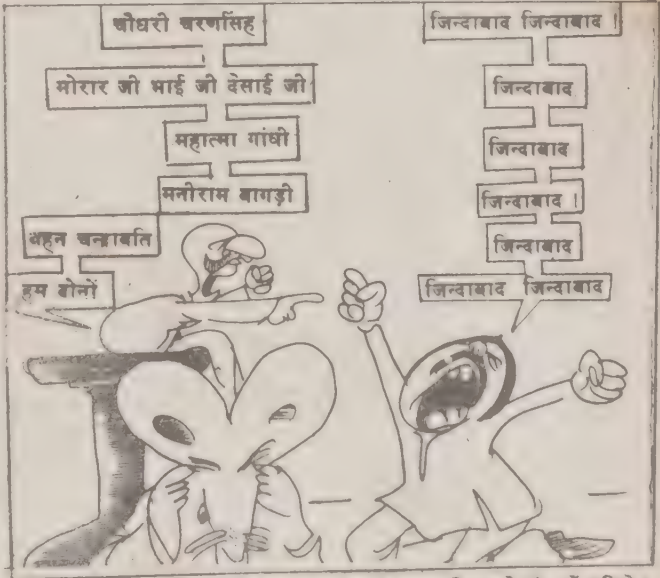 चौधरी चरणसिंह
मोरार जी भाई जी देसाई जी
महात्मा गांधी
मनीराम बागड़ी
बहन चन्द्रावति
हम दोनों
जिन्दाबाद जिन्दाबाद !
जिन्दाबाद
जिन्दाबाद
जिन्दाबाद !
जिन्दाबाद
जिन्दाबाद जिन्दाबाद